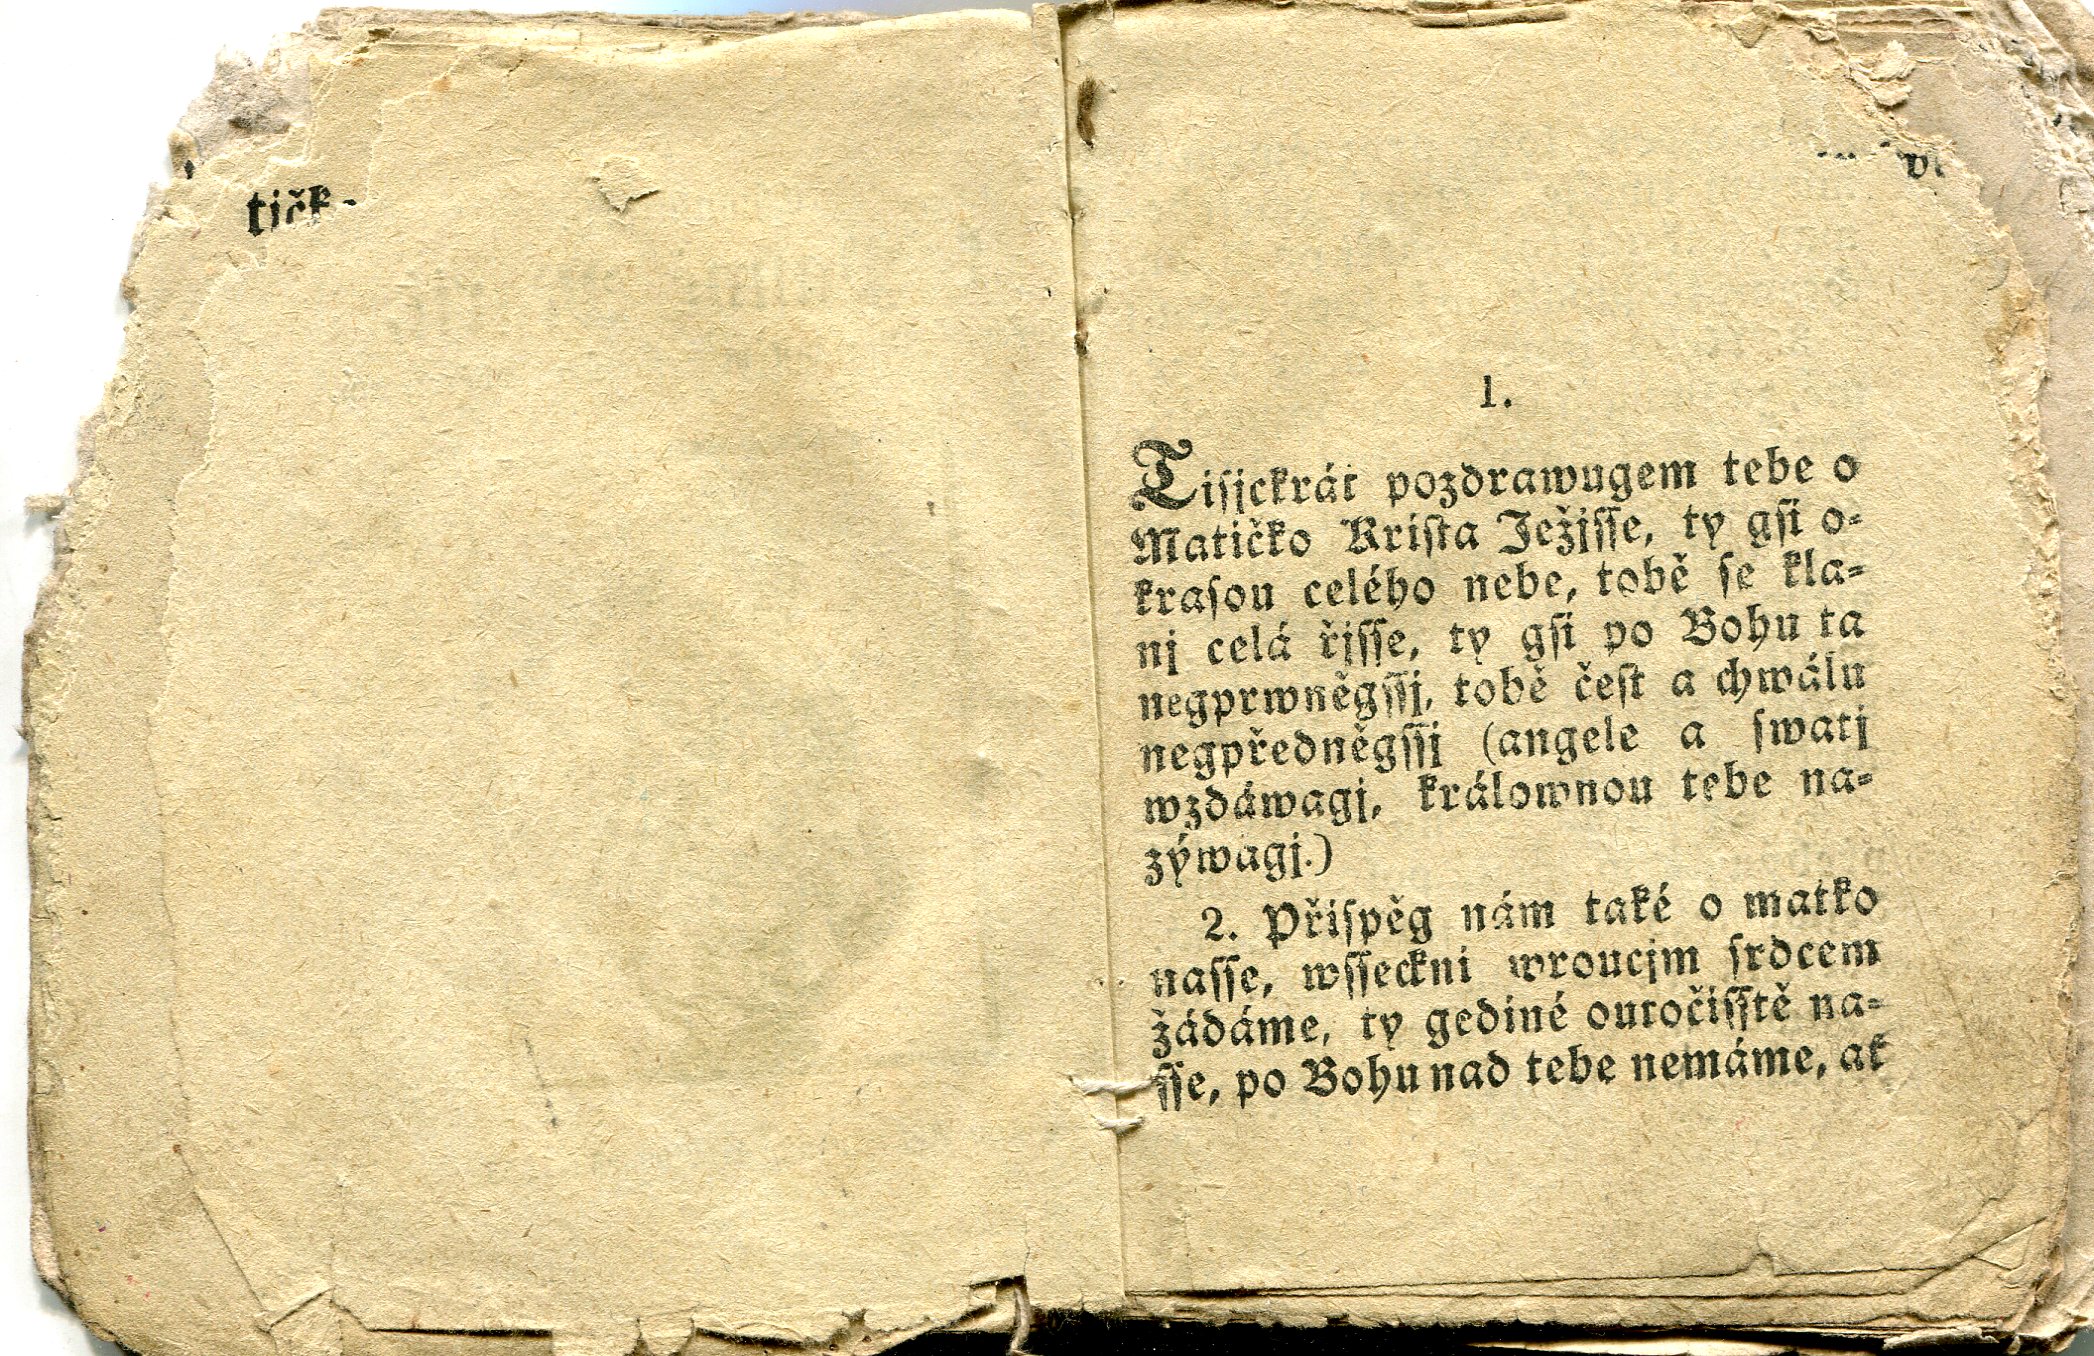 tičk
1.
Tisjckrát pozdrawugem tebe o
Matičko Krista Ježjsse, ty gsi o-
krasou celého nebe, tobě se kla-
nj celá řjsse, ty gsi po Bohu ta
negprwněgssj, tobě čest a chwálu
negpředněgssj (angele a swatj
wzdáwagj, králownou tebe na-
zýwagj.)
2. Přispěg nám také o matko
nasse, wsseckni wroucjm srdcem
žádáme, ty gediné outočisstě na-
sse, po Bohu nad tebe nemáme, ak